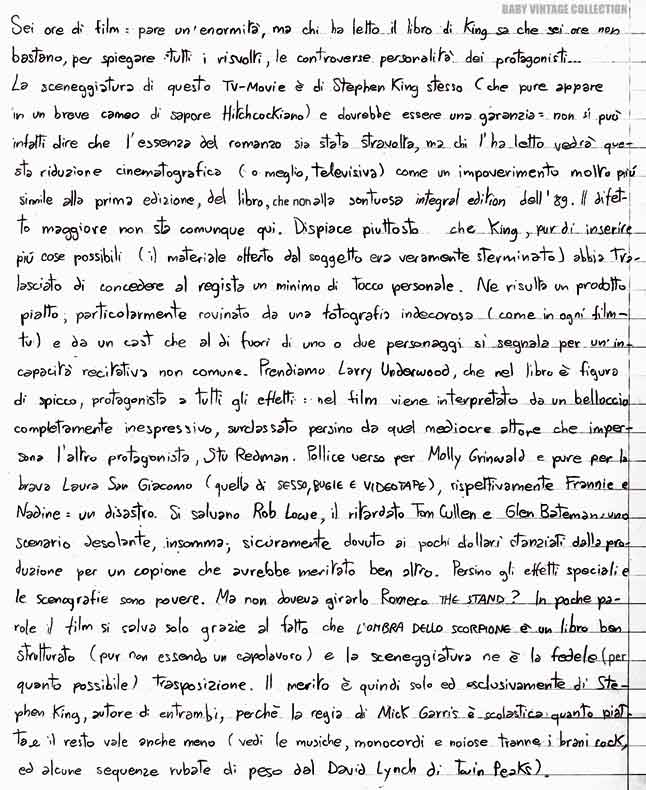 BABY VINTAGE COLLECTION
Sei ore di film: pare un'enormità, ma chi ha letto il libro di King sa che sei ore non
bastano, per spiegare tutti i risvolti, le controverse personalità dei protagonisti...
La sceneggiatura di questo TV-Movie è di Stephen King stesso (che pure appare
in un breve cameo di sapore Hitchcockiano) e dovrebbe essere una garanzia: non si può
infatti dire che l'essenza del romanzo sia stata stravolta, ma chi l'ha letto vedrà que-
sta riduzione cinematografica (o meglio, televisiva) come un impoverimento molto più
simile alla prima edizione, del libro, che non alla sontuosa integral edition dell'89. Il difet-
to maggiore non sta comunque qui. Dispiace piuttosto che King, pur di inserire
più cose possibili (il materiale offerto dal soggetto era veramente sterminato) abbia tra-
lasciato di concedere al regista un minimo di tocco personale. Ne risulta un prodotto
piatto, particolarmente rovinato da una fotografia indecorosa (come in ogni film-
tv) e da un cast che al di fuori di uno o due personaggi si segnala per un'in-
capacità recitativa non comune. Prendiamo Larry Underwood, che nel libro è figura
di spicco, protagonista a tutti gli effetti: nel film viene interpretato da un belloccio
completamente inespressivo, surclassato persino da quel mediocre attore che imper-
sona l'altro protagonista, Stu Redman. Pollice verso per Molly Grinwald e pure per la
brava Laura San Giacomo (quella di SESSO, BUGIE E VIDEOTAPE), rispettivamente Frannie e
Nadine: un disastro. Si salvano Rob Lowe, il ritardato Tom Cullen e Glen Bateman: uno
scenario desolante, insomma; sicuramente dovuto ai pochi dollari stanziati dalla pro-
duzione per un copione che avrebbe meritato ben altro. Persino gli effetti speciali e
le scenografie sono povere. Ma non doveva girarlo Romero THE STAND? In poche pa-
role il film si salva solo grazie al fatto che L'OMBRA DELLO SCORPIONE è un libro ben
strutturato (pur non essendo un capolavoro) e la sceneggiatura ne è la fedele (per
quanto possibile) trasposizione. Il merito è quindi solo ed esclusivamente di Ste-
phen King, autore di entrambi, perché la regia di Mick Garris è scolastica quanto piat-
ta e il resto vale anche meno (vedi le musiche, monocordi e noiose tranne i brani rock,
ed alcune sequenze rubate di peso dal David Lynch di Twin Peaks).